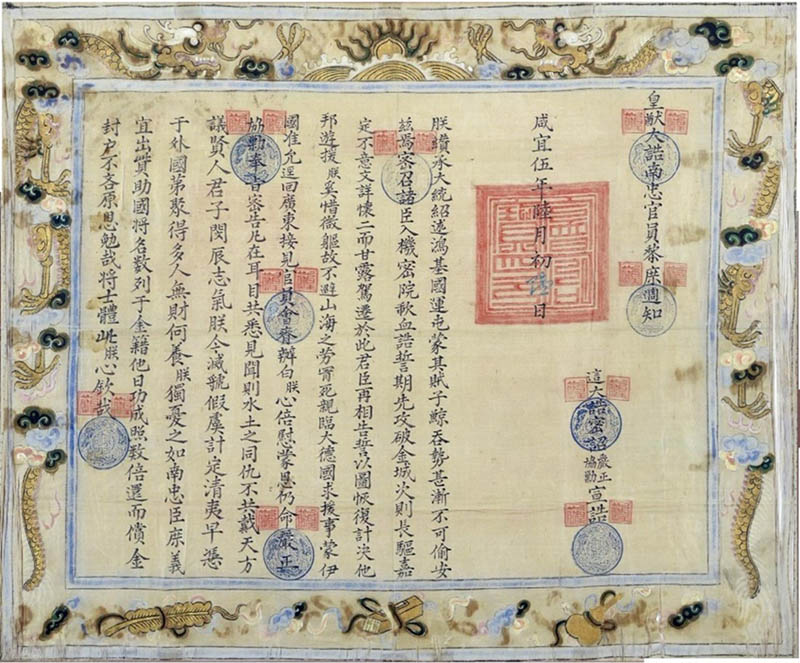 皇猷大誥南忠官員黎庶週知
這大誥密詔嚴正協勷宣誥
咸宜伍年陸月初日
朕纘承大統紹遠鴻基國運屯蒙其賊子鯨吞勢甚漸不可偷安
茲焉密召諸臣入機密院歃血誥誓期先攻破金城次則長驅嘉
定不意文詳懷二而甘露駕遷於此君臣再相告誓以圖恢復計決他
邦遊援朕奚惜微軀故不避山海之勞冒死親臨大德國求援事蒙伊
國准允返回廣東接見官員會辦白朕心倍慰蒙恩仍命嚴正
協勷奉旨密告凡在耳目共悉見聞則水土之同仇不共戴天方
議賢人君子閔辰志氣朕今滅號假虞計定清夷早憑
于外國第聚得多人無財何養朕獨憂之如南忠臣庶義
宜出貲助國將名數列于金籍他日功成照數倍還而償金
封戶不吝原恩勉哉將士體此朕心欽哉